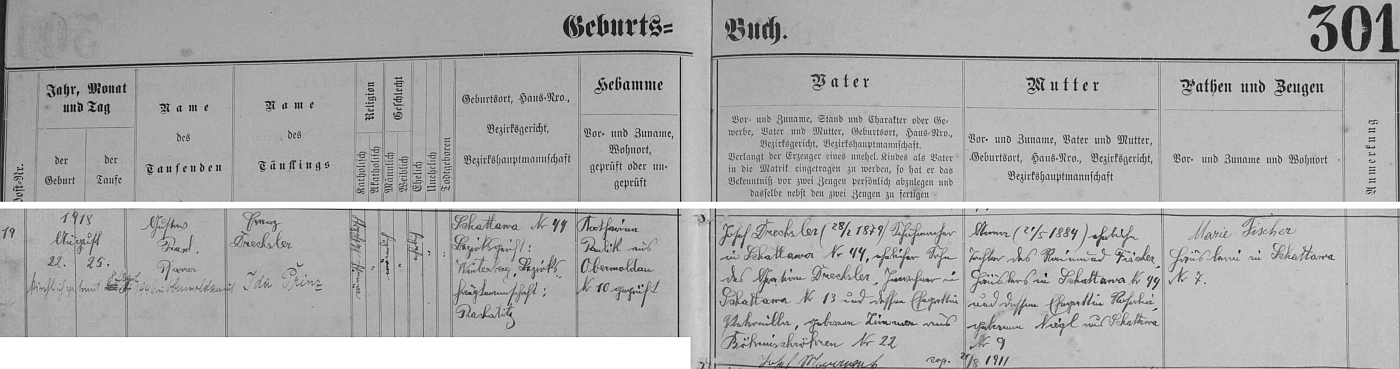 Geburts=
Buch.
301
Post-Nr.
Jahr, Monat
und Tag
der
Geburt
der
Taufe
Name
des
Taufenden
Name
des
Täuflings
Religion
Katholisch
Akatholisch
Geschlecht
Männlich
Weiblich
Ehelich
Unehelich
Todtgeboren
Geburtsort, Haus-Nro.,
Bezirksgericht,
Bezirkshauptmannschaft
Hebamme
Vor- und Zuname,
Wohnort,
geprüft oder un-
geprüft
Vater
Vor- und Zuname, Stand und Charakter oder Ge-
werbe, Vater und Mutter, Geburtsort, Haus-Nro.,
Bezirksgericht, Bezirkshauptmannschaft.
Verlangt der Erzeuger eines unehel. Kindes als Vater
in die Matrik eingetragen zu werden, so hat er das
Bekenntniß vor zwei Zeugen persönlich abzulegen und
dasselbe nebst den zwei Zeugen zu fertigen
Mutter
Vor- und Zuname, Vater und Mutter,
Geburtsort, Haus-Nro., Bezirksgericht,
Bezirkshauptmannschaft
Pathen und Zeugen
Vor- und Zuname und Wohnort
Anmerkung
19
1918
August
22. 25.
Gustav
Pfarrer
Franz
Drechsler
Ida Prinz
Schattawa Nr 44
Bezirksgericht:
Winterberg, Bezirks-
hauptmannschaft:
Prachatitz
Katharina
aus
Obermoldau
Nr 10 geprüft
Josef Drechsler (28/2 1879) Schuhmacher
in Schattawa Nr 44, ehelicher Sohn
des Drechsler, Inwohner in
Schattawa Nr 13 und dessen Ehegattin
geborene Zimmer aus
Böhmischröhren Nr 22
Josef
cop. 21/8 1911
(21/5 1884) eheliche
Tochter des Fischer,
Häuslers in Schattawa Nr 44
und dessen Ehegattin
geborene aus Schattawa
Nr 9
Marie Fischer
Häuslerin in Schattawa
Nr 7.